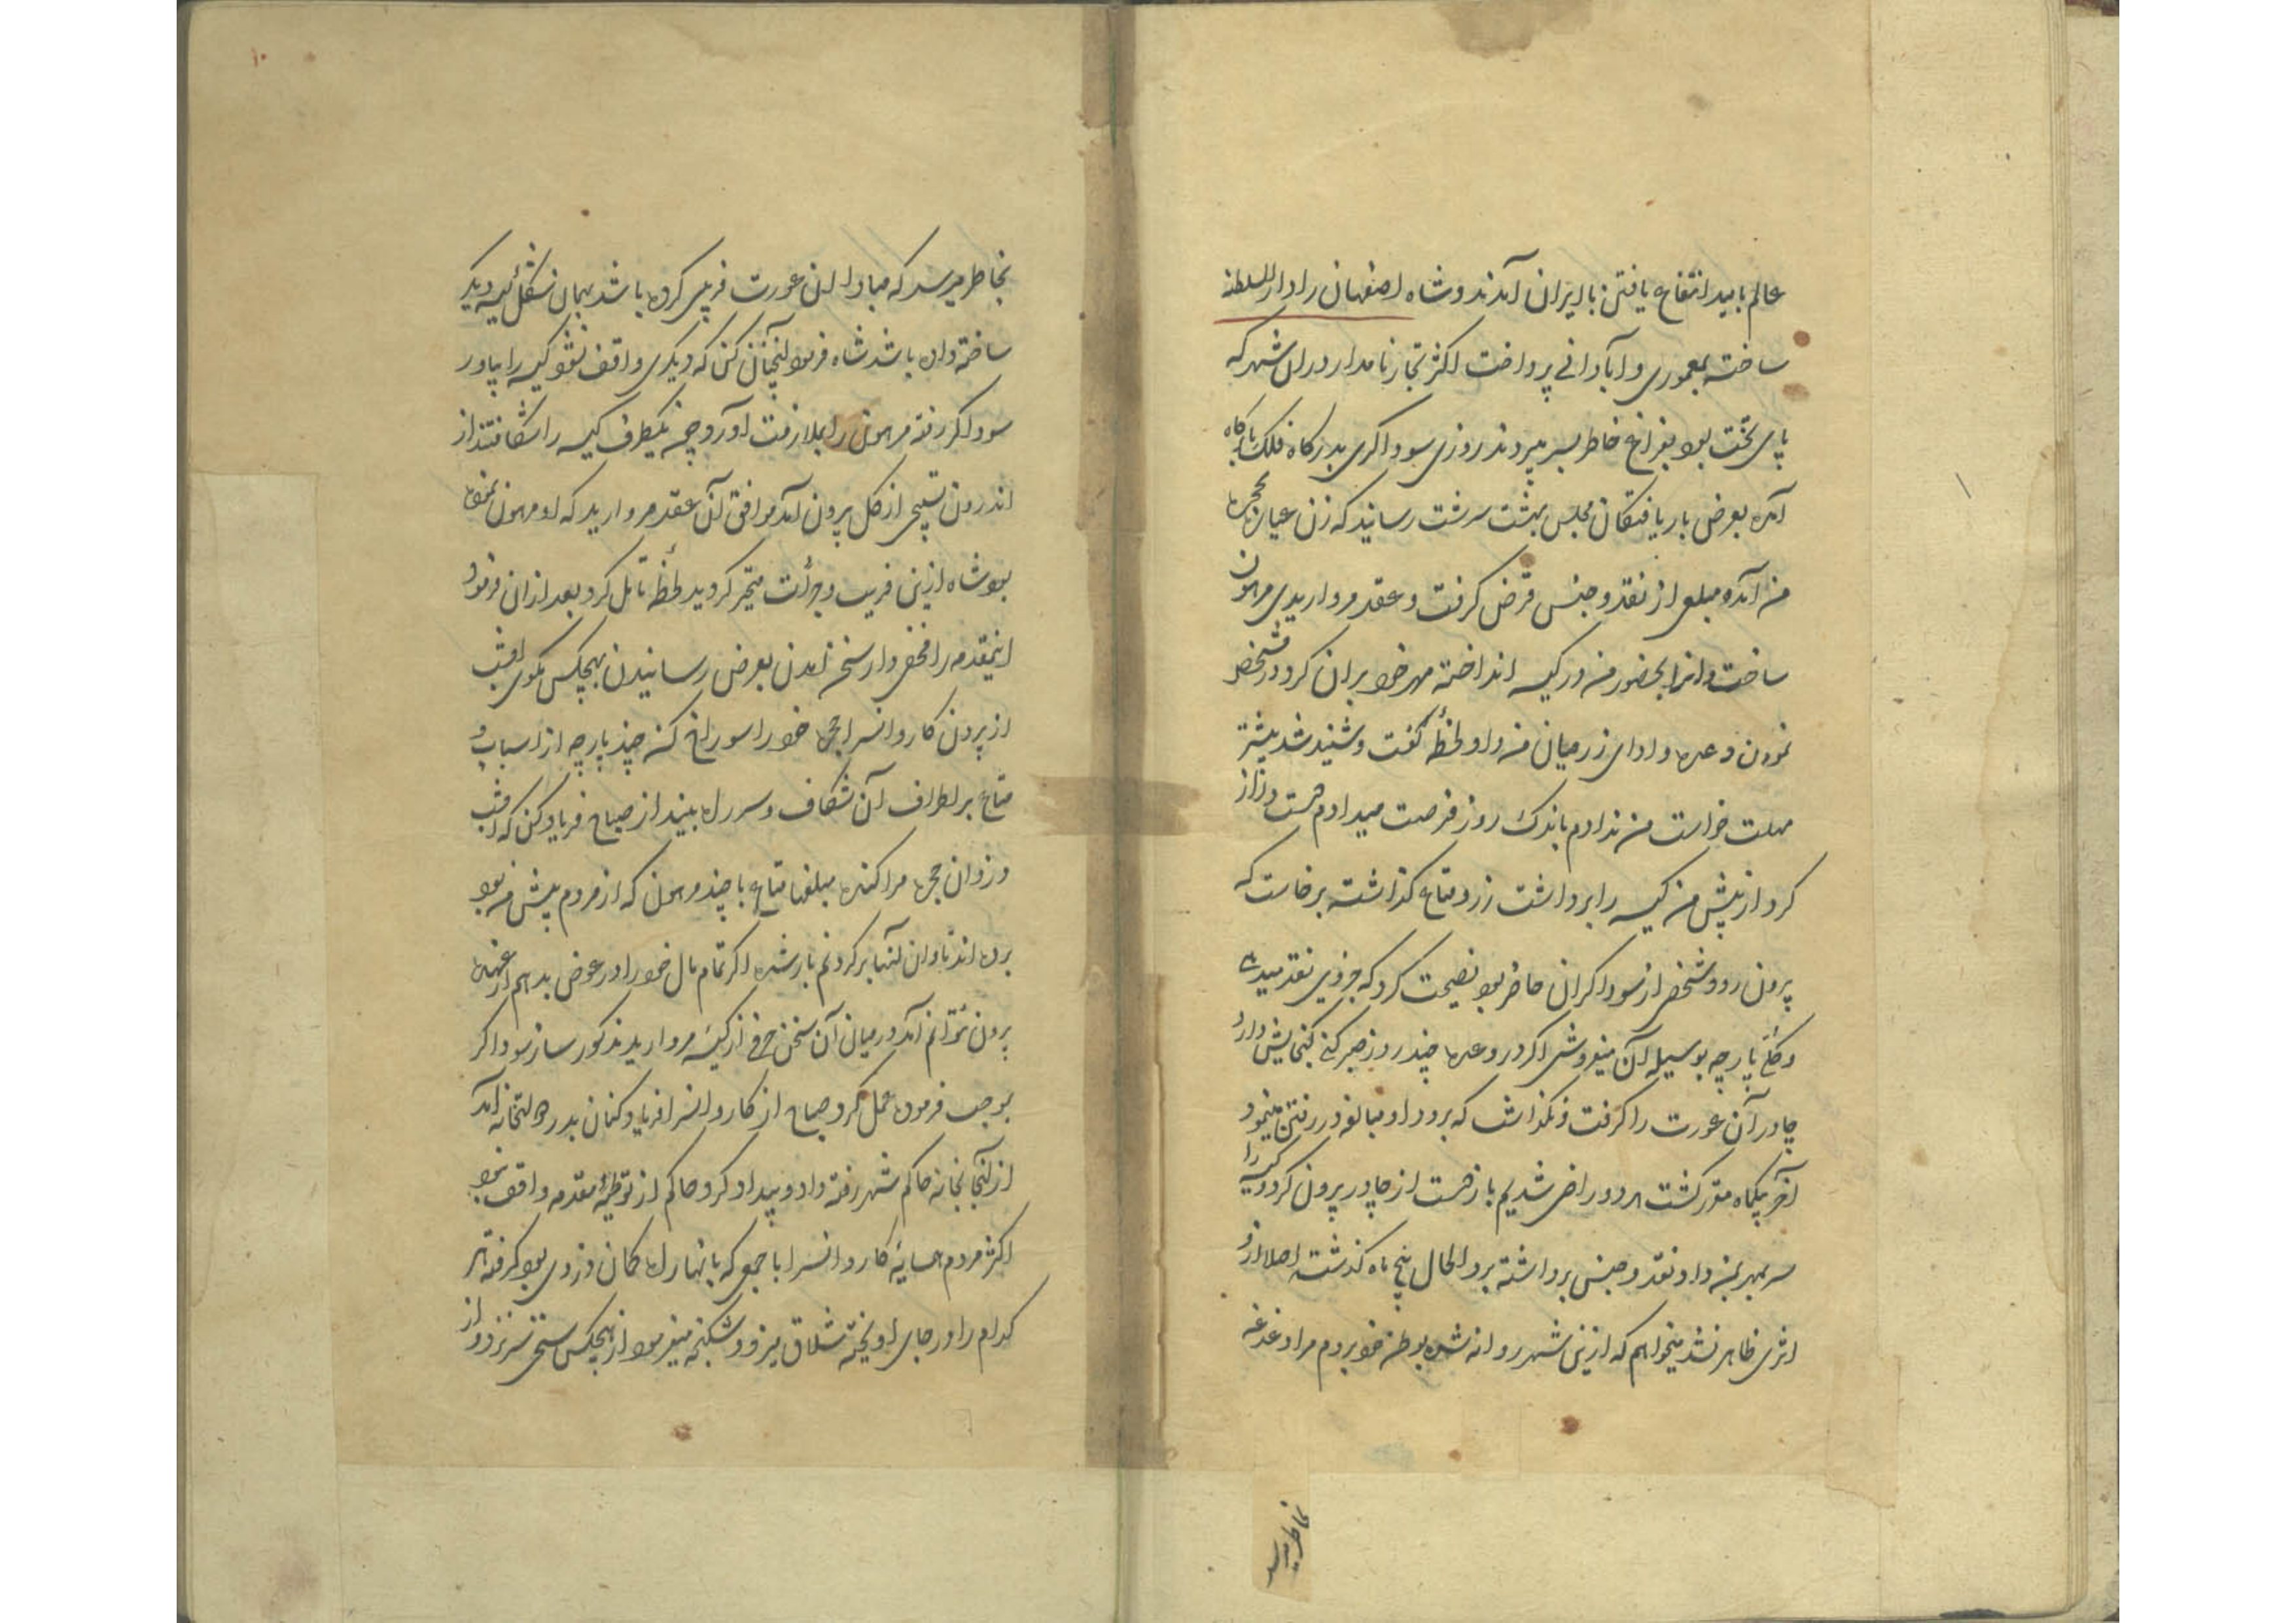 عالم بامید انتفاع یافتن بایران آمدند و شاه اصفهان را دار السلطنه
ساخته بمعموری و آبادانی پرداخت اکثر تجار نامدار دران شهر که
پای تخت بود بفراغ خاطر بسر میبردند روزی سوداکری بدرکاه فلک بارکاه
آمده بعرض باریافتکان مجلس بهشت سرشت رسانید که زن عیاره بحجره
من آمده مبلغی از نقد و جنس قرض کرفت و عقد مرواریدی مرهون
ساخت و انرا بحضور من در کیسه انداخته مهر خود بران کرد و در مشخص
نمودن وعده و ادای زر میان من و او لحظهٔ کفت و شنید شد بیشتر
مهلت خواست من ندادم باندک روز فرصت میدادم دست دراز
کرد از پیش من کیسه را برداشت زر و متاع کذاشته برخاست که
بیرون رود شخصی از سوداکران حاضر بود نصیحت کرد که جزوی نقد میدهی
و کلی پارچه بوسیله آن میفروشی اکر در وعده چند روز صبر کنی کنجایش دارد
چادر آن عورت را کرفت و نکذاشت که برود او مبالغه در رفتن مینمود
آخر یکماه مقرر کشت هر دو راضی شدیم باز دست از چادر بیرون کرد و کیسه را
سر بمهر بمن داد و نقد و جنس برداشته برد الحال پنج ماه کذشت اصلا ازو
اثری ظاهر نشد میخواهم که ازین شهر روانه شده بوطن خود بروم مرا دغدغه
بخاطر میرسد
بخاطر میرسد که مبادا ان عورت فریبی کرده باشد بهمان شکل کیسه دیکر
ساخته داده باشد شاه فرمود انچنان کن که دیکری واقف نشود کیسه را بیاور
سوداکر رفته مرهون را بملازمت آورد چون یکطرف کیسه را شکافتند از
اندرون تسبیحی از کل بیرون آمد موافق آن عقد مروارید که او مرهون نموده
بود شاه ازین فریب و جرأت متحیر کردید لحظهٔ تأمل کرد بعد ازان فرمود
اینمقدمه را مخفی دار سخن آمدن بعرض رسانیدن بهیچکس مکوی امشب
از بیرون کاروانسرا حجره خود را سوراخ کن چند پارچه از اسباب و
متاع بر اطراف آن شکاف و سر راه بینداز صباح فریاد کن که امشب
دزدان حجره مرا کنده مبلغها متاع با چند مرهون که از مردم پیش من بود
برده اند تاوان آنها بر کردنم بار شده اکر تمام مال خود را در عوض بدهم از عهده
بیرون نتوانم آمد در میان آن سخن حرفی از کیسهٔ مروارید مذکور ساز سوداکر
بموجب فرموده عمل کرد صباح از کاروانسرا فریاد کنان بدر دولتخانه آمد
از آنجا بخانه حاکم شهر رفته داد و بیداد کرد حاکم از توطیهٔ مقدمه واقف نبود
اکثر مردم همسایهٔ کاروانسرا با جمعی که بانها راه کمان دزدی بود کرفته هر
کدام را در جای آویخته شلاق میزد و شکنجه میفرمود از هیچکس سخنی سر نزد و از